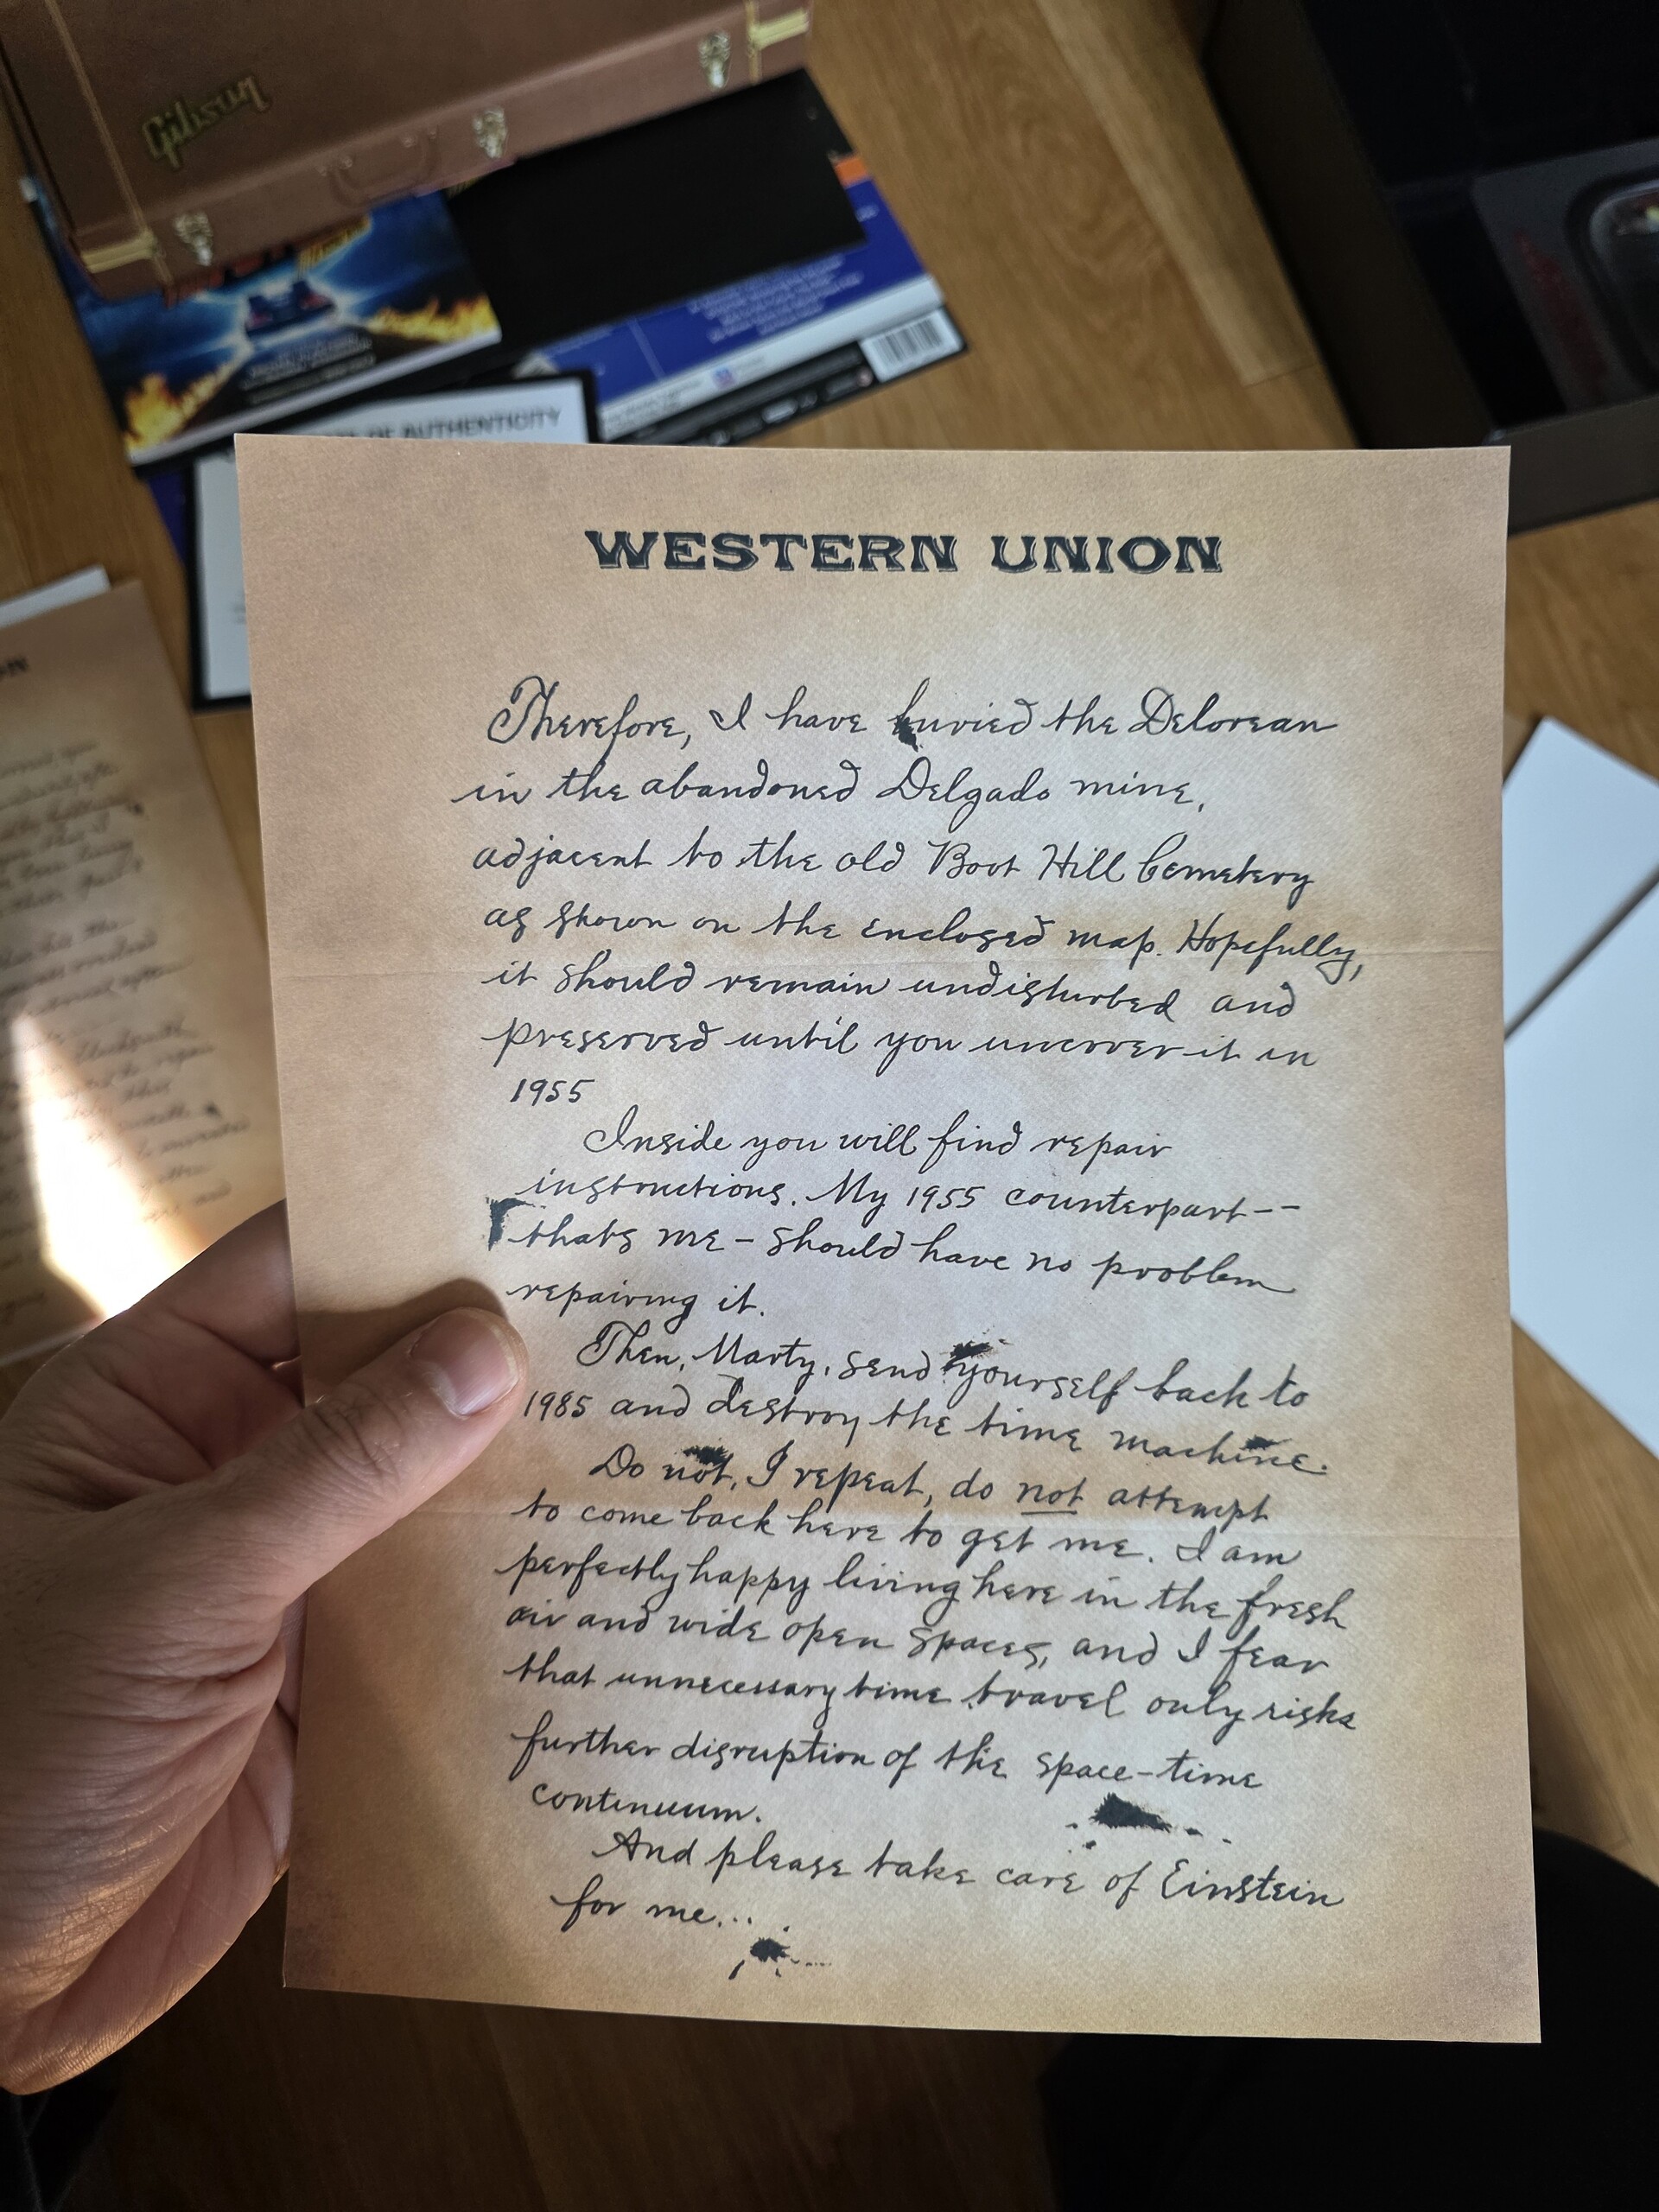 Gibson
OF AUTHENTICITY
WESTERN UNION
Therefore, I have buried the Delorean
in the abandoned Delgado mine,
adjacent to the old Boot Hill Cemetery
as shown on the enclosed map. Hopefully,
it should remain undisturbed and
preserved until you uncover it in
1955
Inside you will find repair
instructions. My 1955 counterpart--
thats me - should have no problem
repairing it.
Then, Marty, send yourself back to
1985 and destroy the time machine.
Do not, I repeat, do not attempt
to come back here to get me. I am
perfectly happy living here in the fresh
air and wide open spaces, and I fear
that unnecessary time travel only risks
further disruption of the space-time
continuum.
And please take care of Einstein
for me...